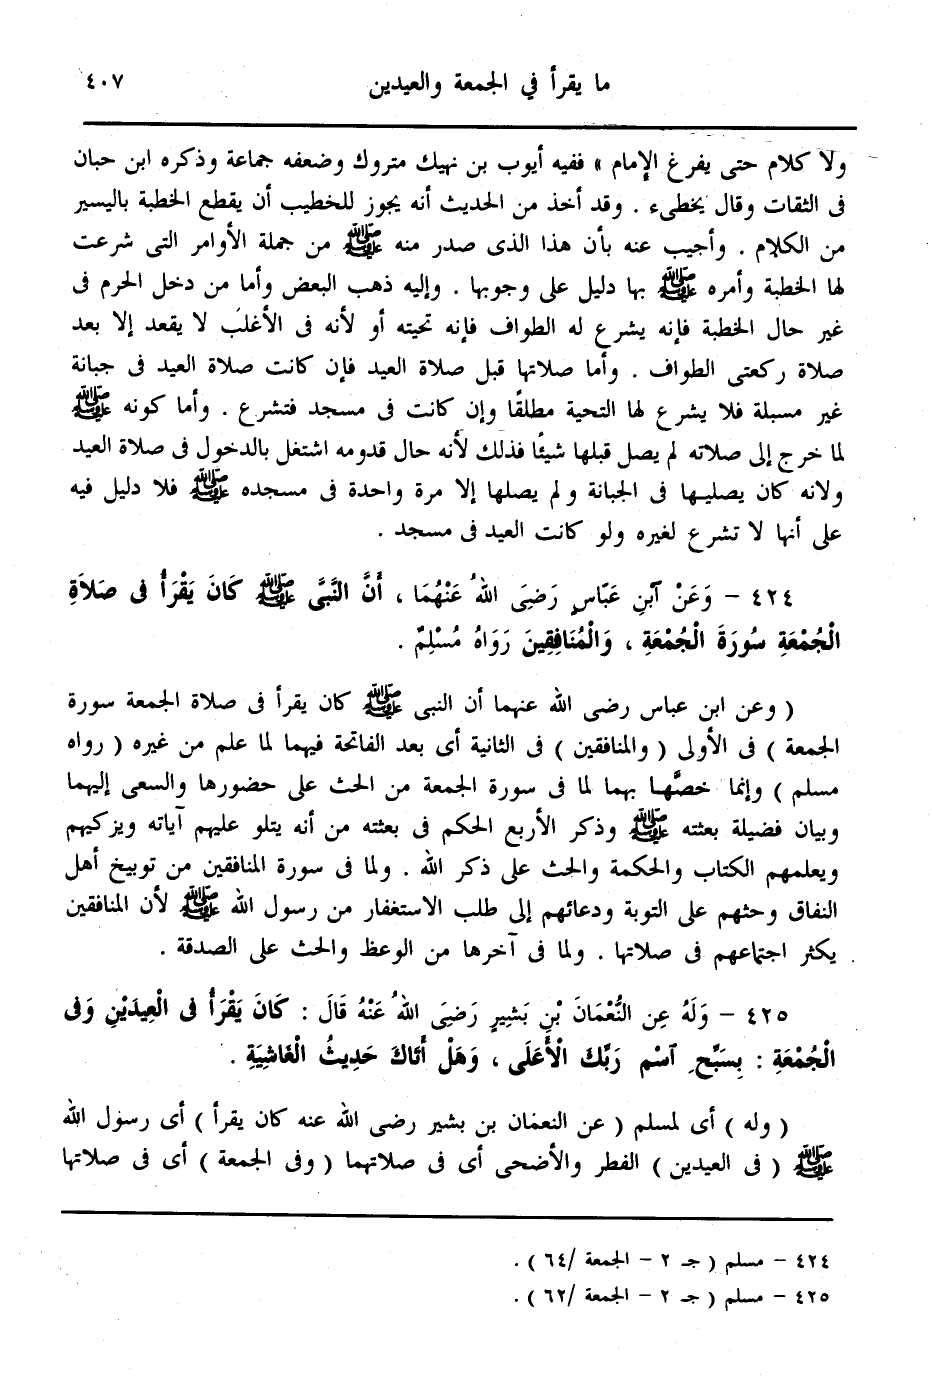 ما يقرأ في الجمعة والعيدين ٤٠٧
ولا كلام حتى يفرغ الإمام » ففيه أيوب بن نهيك متروك وضعفه جماعة وذكره ابن حبان
فى الثقات وقال يخطىء . وقد أخذ من الحديث أنه يجوز للخطيب أن يقطع الخطبة باليسير
من الكلام . وأجيب عنه بأن هذا الذى صدر منه ﷺ من جملة الأوامر التى شرعت
لها الخطبة وأمره ﷺ بها دليل على وجوبها . وإليه ذهب البعض وأما من دخل الحرم فى
غير حال الخطبة فإنه يشرع له الطواف فإنه تحيته أو لأنه فى الأغلب لا يقعد إلا بعد
صلاة ركعتى الطواف . وأما صلاتها قبل صلاة العيد فإن كانت صلاة العيد فى جبانة
غير مسبلة فلا يشرع لها التحية مطلقًا وإن كانت فى مسجد فتشرع . وأما كونه ﷺ
لما خرج إلى صلاته لم يصل قبلها شيئًا فذلك لأنه حال قدومه اشتغل بالدخول فى صلاة العيد
ولانه كان يصليها فى الجبانة ولم يصلها إلا مرة واحدة فى مسجده ﷺ فلا دليل فيه
على أنها لا تشرع لغيره ولو كانت العيد فى مسجد .
٤٢٤ – وَعَنْ آبْنِ عَبَّاسٍ رَضِىَ اللهُ عَنْهُمَا ، أَنَّ النَّبىَّ ﷺ كَانَ يَقْرَأُ فى صَلاَةِ
الْجُمْعَةِ سُورَةَ الْجُمْعَةِ ، وَالْمُنَافِقِينَ رَوَاهُ مُسْلِمٌ .
( وعن ابن عباس رضى الله عنهما أن النبى ﷺ كان يقرأ فى صلاة الجمعة سورة
الجمعة ) فى الأولى ( والمنافقين ) فى الثانية أى بعد الفاتحة فيهما لما علم من غيره ( رواه
مسلم ) وإنما خصَّها بهما لما فى سورة الجمعة من الحث على حضورها والسعى إليهما
وبيان فضيلة بعثته ﷺ وذكر الأربع الحكم فى بعثته من أنه يتلو عليهم آياته ويزكيهم
ويعلمهم الكتاب والحكمة والحث على ذكر الله . ولما فى سورة المنافقين من توبيخ أهل
النفاق وحثهم على التوبة ودعائهم إلى طلب الاستغفار من رسول الله ﷺ لأن المنافقين
يكثر اجتماعهم فى صلاتها . ولما فى آخرها من الوعظ والحث على الصدقة .
٤٢٥ – وَلَهُ عِنِ النُّعْمَانَ بْنِ بَشِيرٍ رَضِىَ اللهُ عَنْهُ قَالَ : كَانَ يَقْرَأُ فى الْعِيدَيْنِ وَفى
الْجُمْعَةِ : بِسَبِّحِ آسْمِ رَبِّكَ الْأَعْلَى ، وَهَلْ أَتَاكَ حَدِيثُ الْغَاشِيَةِ .
( وله ) أى لمسلم ( عن النعمان بن بشير رضى الله عنه كان يقرأ ) أى رسول الله
ﷺ ( فى العيدين ) الفطر والأضحى أى فى صلاتهما ( وفى الجمعة ) أى فى صلاتها
٤٢٤ – مسلم ( جـ ٢ – الجمعة /٦٤ ) .
٤٢٥ – مسلم ( جـ ٢ – الجمعة /٦٢ ) .